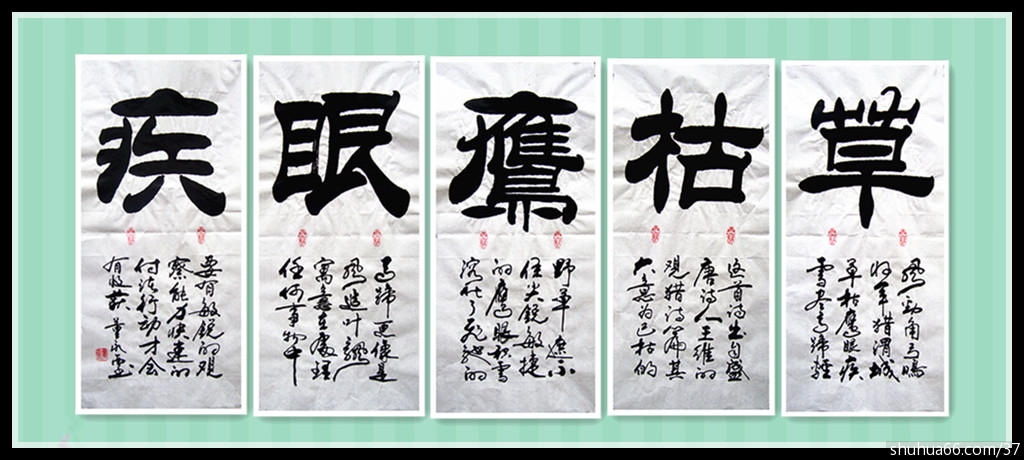 草
风劲角弓鸣
将军猎渭城
草枯鹰眼疾
雪尽马蹄轻
枯
这首诗出自盛
唐诗人王维的
观猎诗篇其
大意为已枯的
鷹
野草遮不
住尖锐敏捷
的鹰眼积雪
溶化了飞驰的
眼
马蹄更像是
风追叶飘
寓意在处理
任何事物中
疾
要有敏锐的观
察能力快速的
付诸行动才会
有收获
shuhua66.com/37